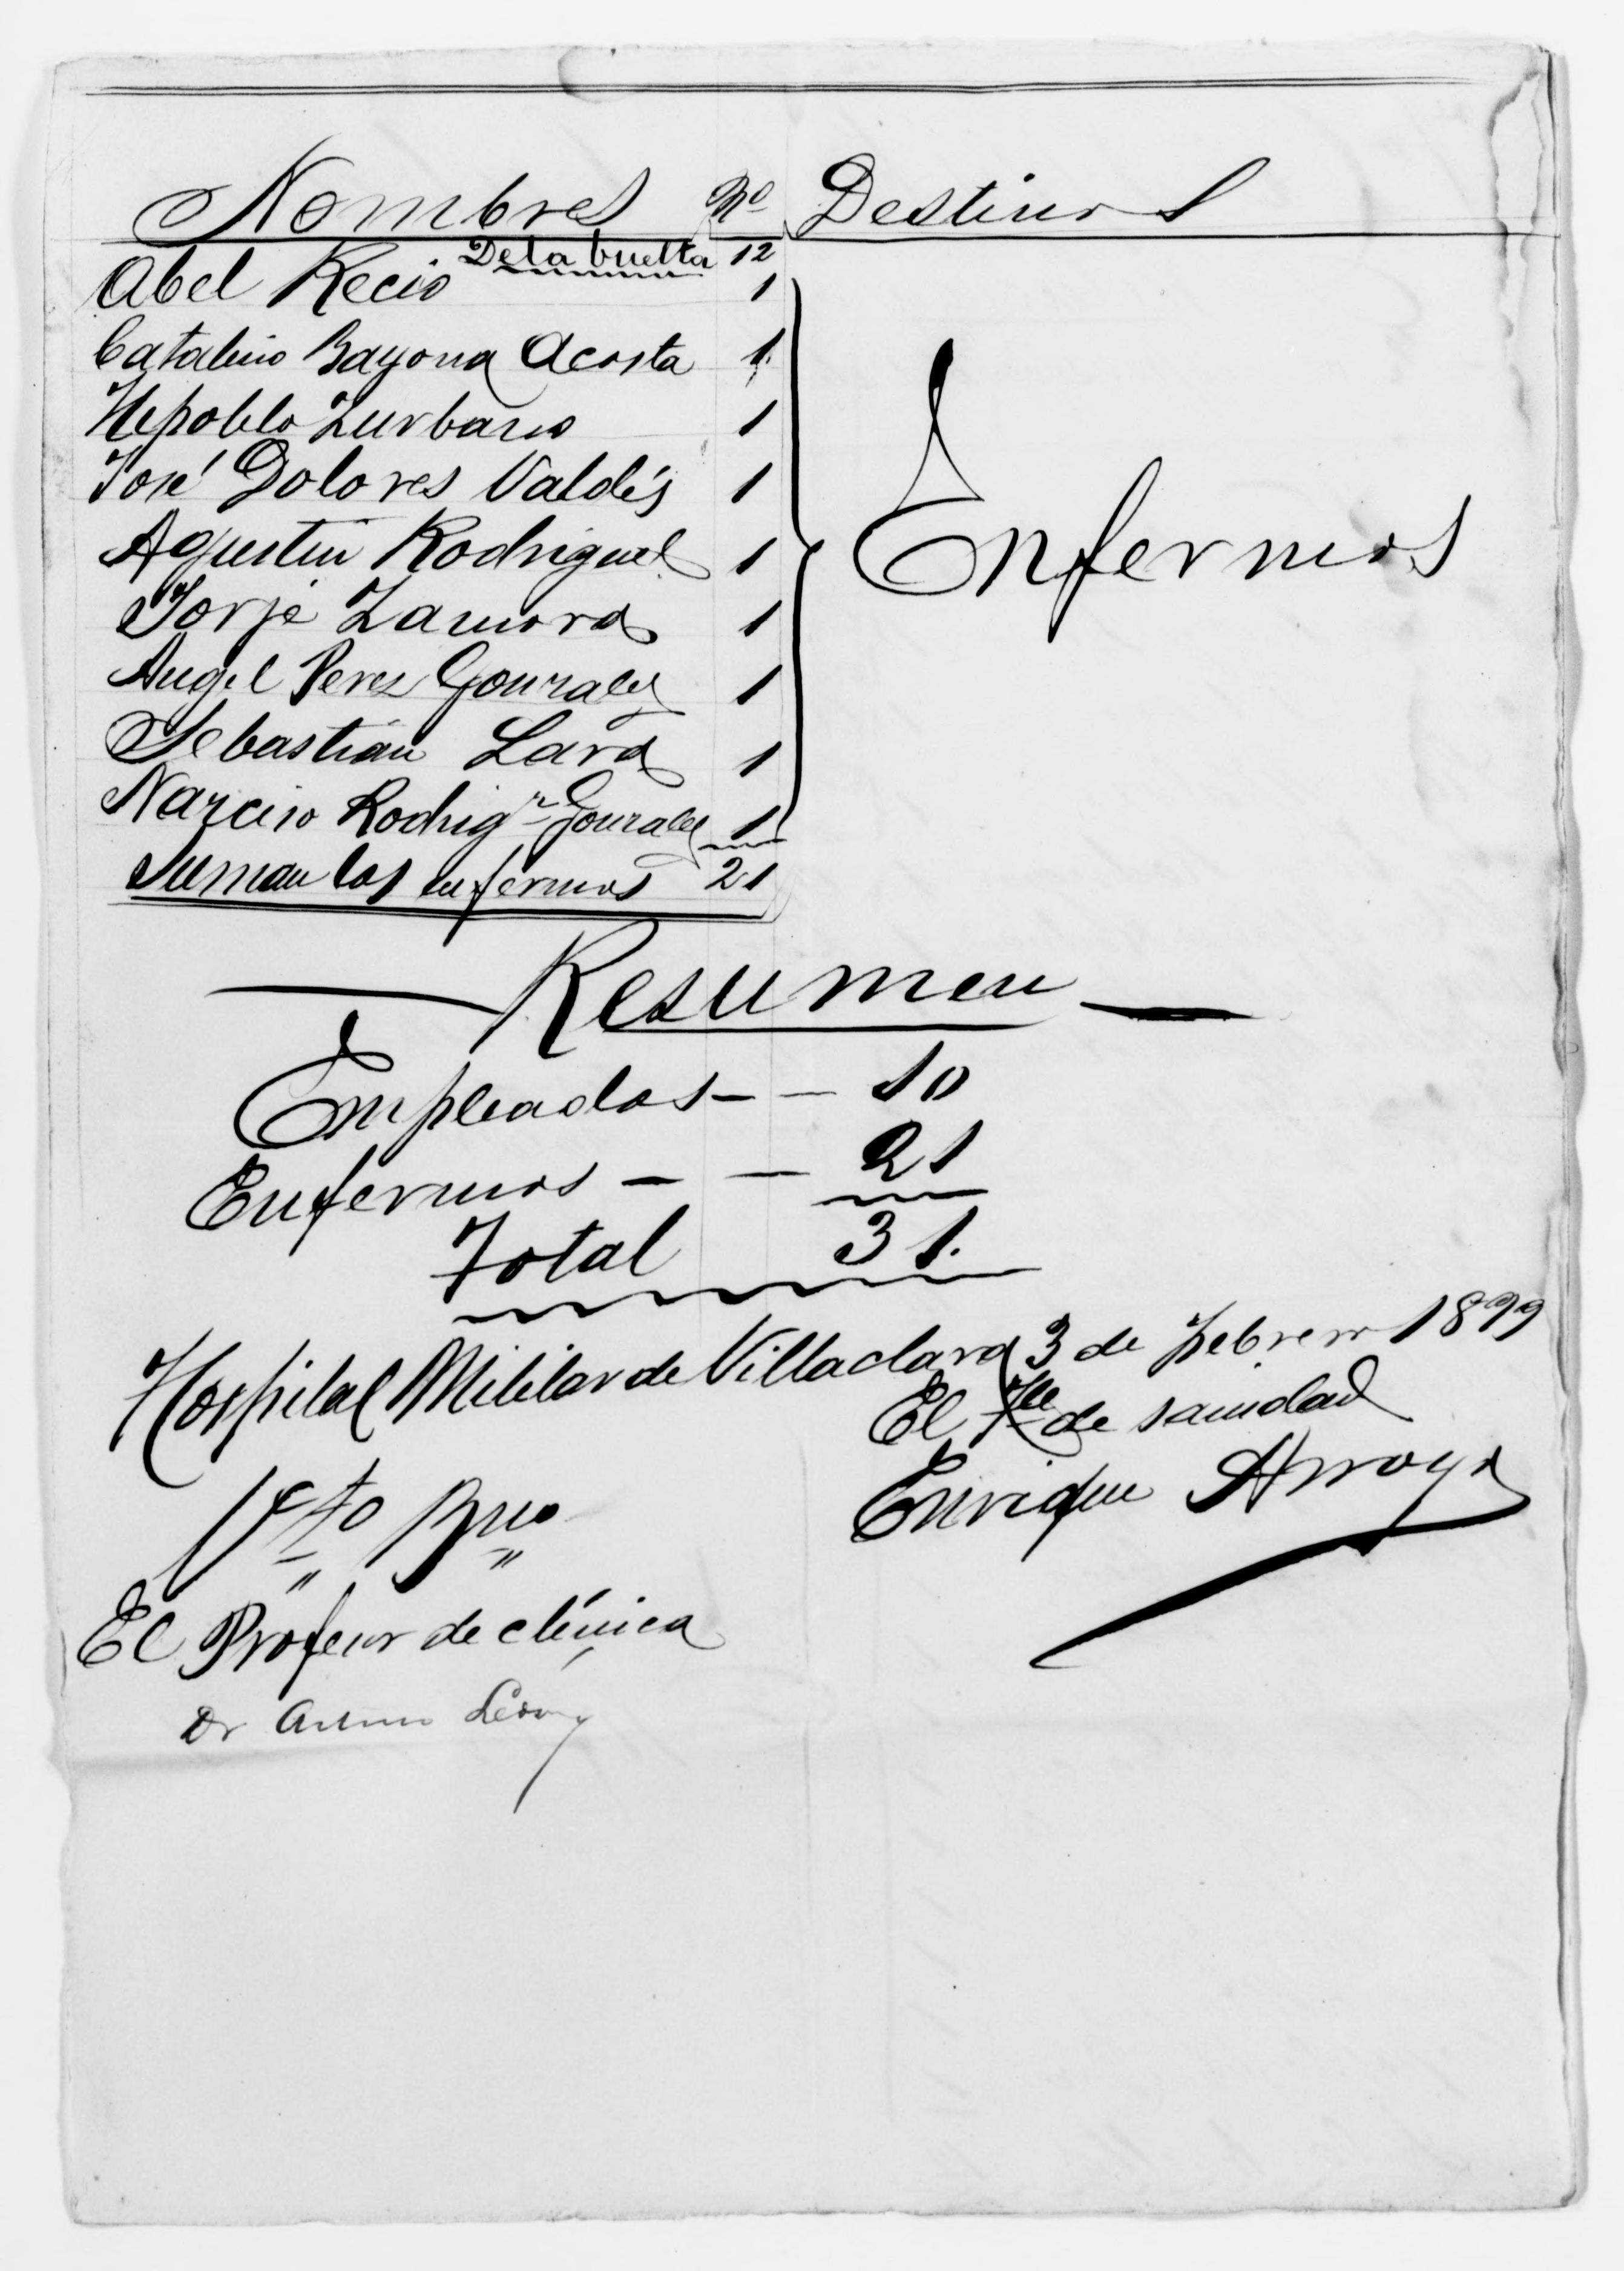 Nombres No Destinos
De la buelta 12
Abel Recio 1
Catalino Bayona Acosta 1
Hepoblo Zurbano 1
José Dolores Valdés 1
Agustin Rodriguez 1
Jorje Zamora 1
Angel Perez Gonzalez 1
Sebastian Lara 1
Narciso Rodrigz Gonzalez 1
Enfermos
Suman los enfermos 21
Resumen
Empleados - - 10
Enfermos - - 21
Total 31.
Hospital Militar de Villaclara 3 de Febrero 1899
El de sanidad
Enrique Arroyo
Vto Bno
El Profesor de clínica
Dr Arturo